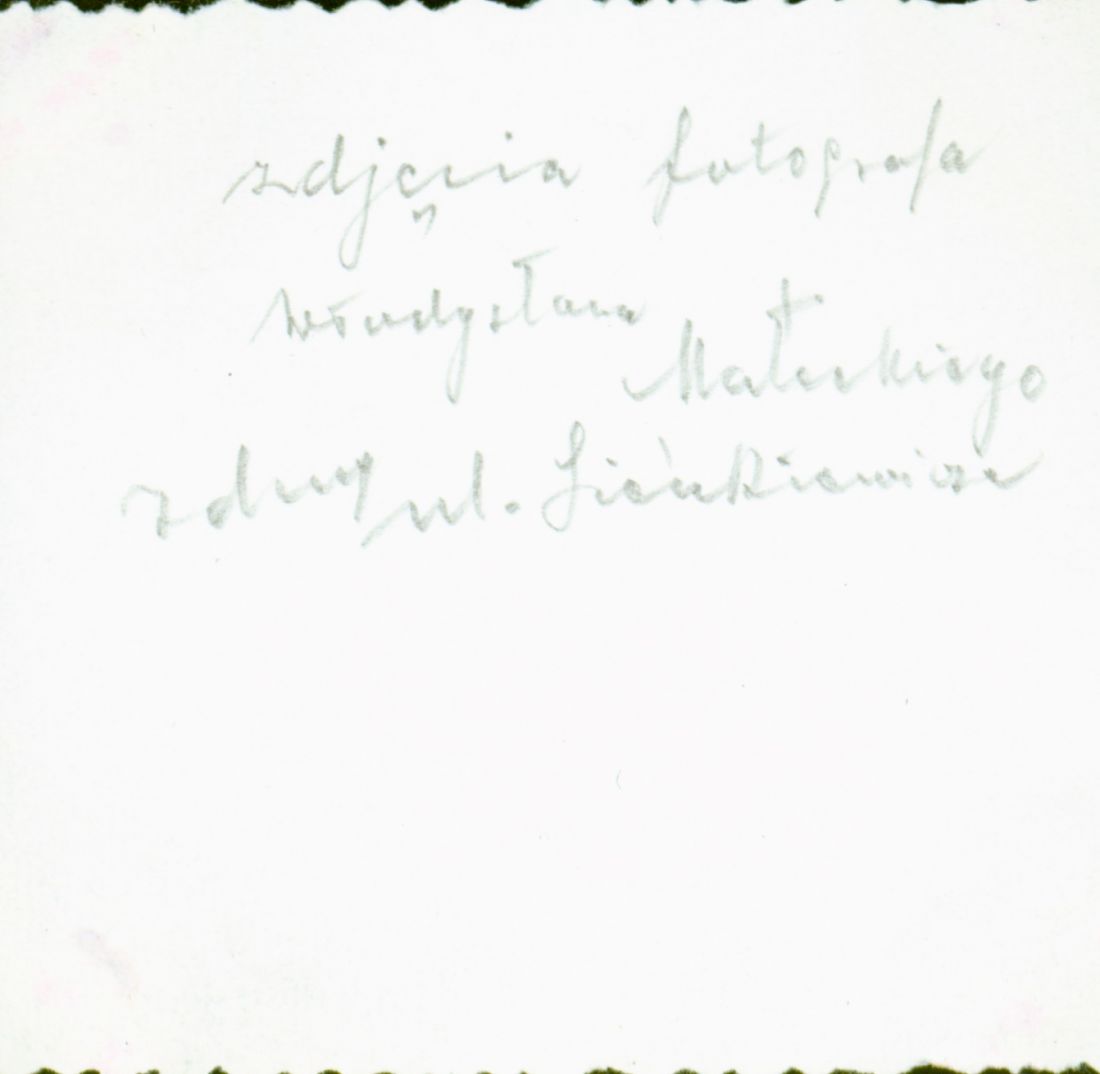 zdjęcia fotografa
Władysława
Małeckiego
zduny ul. Sienkiewicza